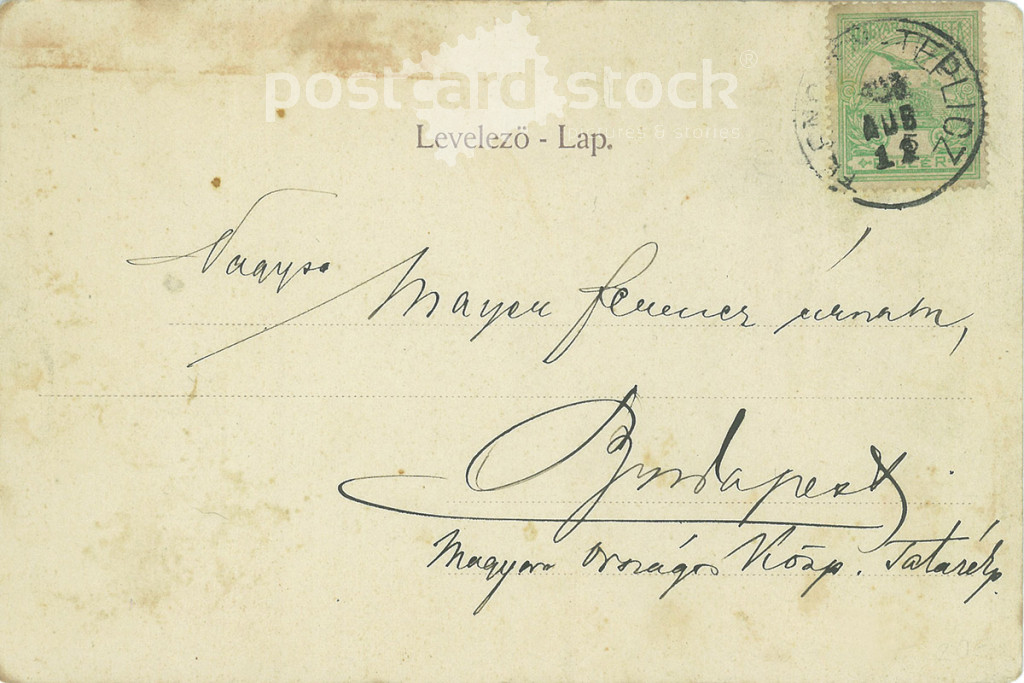 postcardstock
pictures & stories
Levelező - Lap.
-TEPLICZ
AUG
12
Nagys.
Mayer Ferencz úrnak,
Budapest
Magyar Országos Közp. Takarékp.